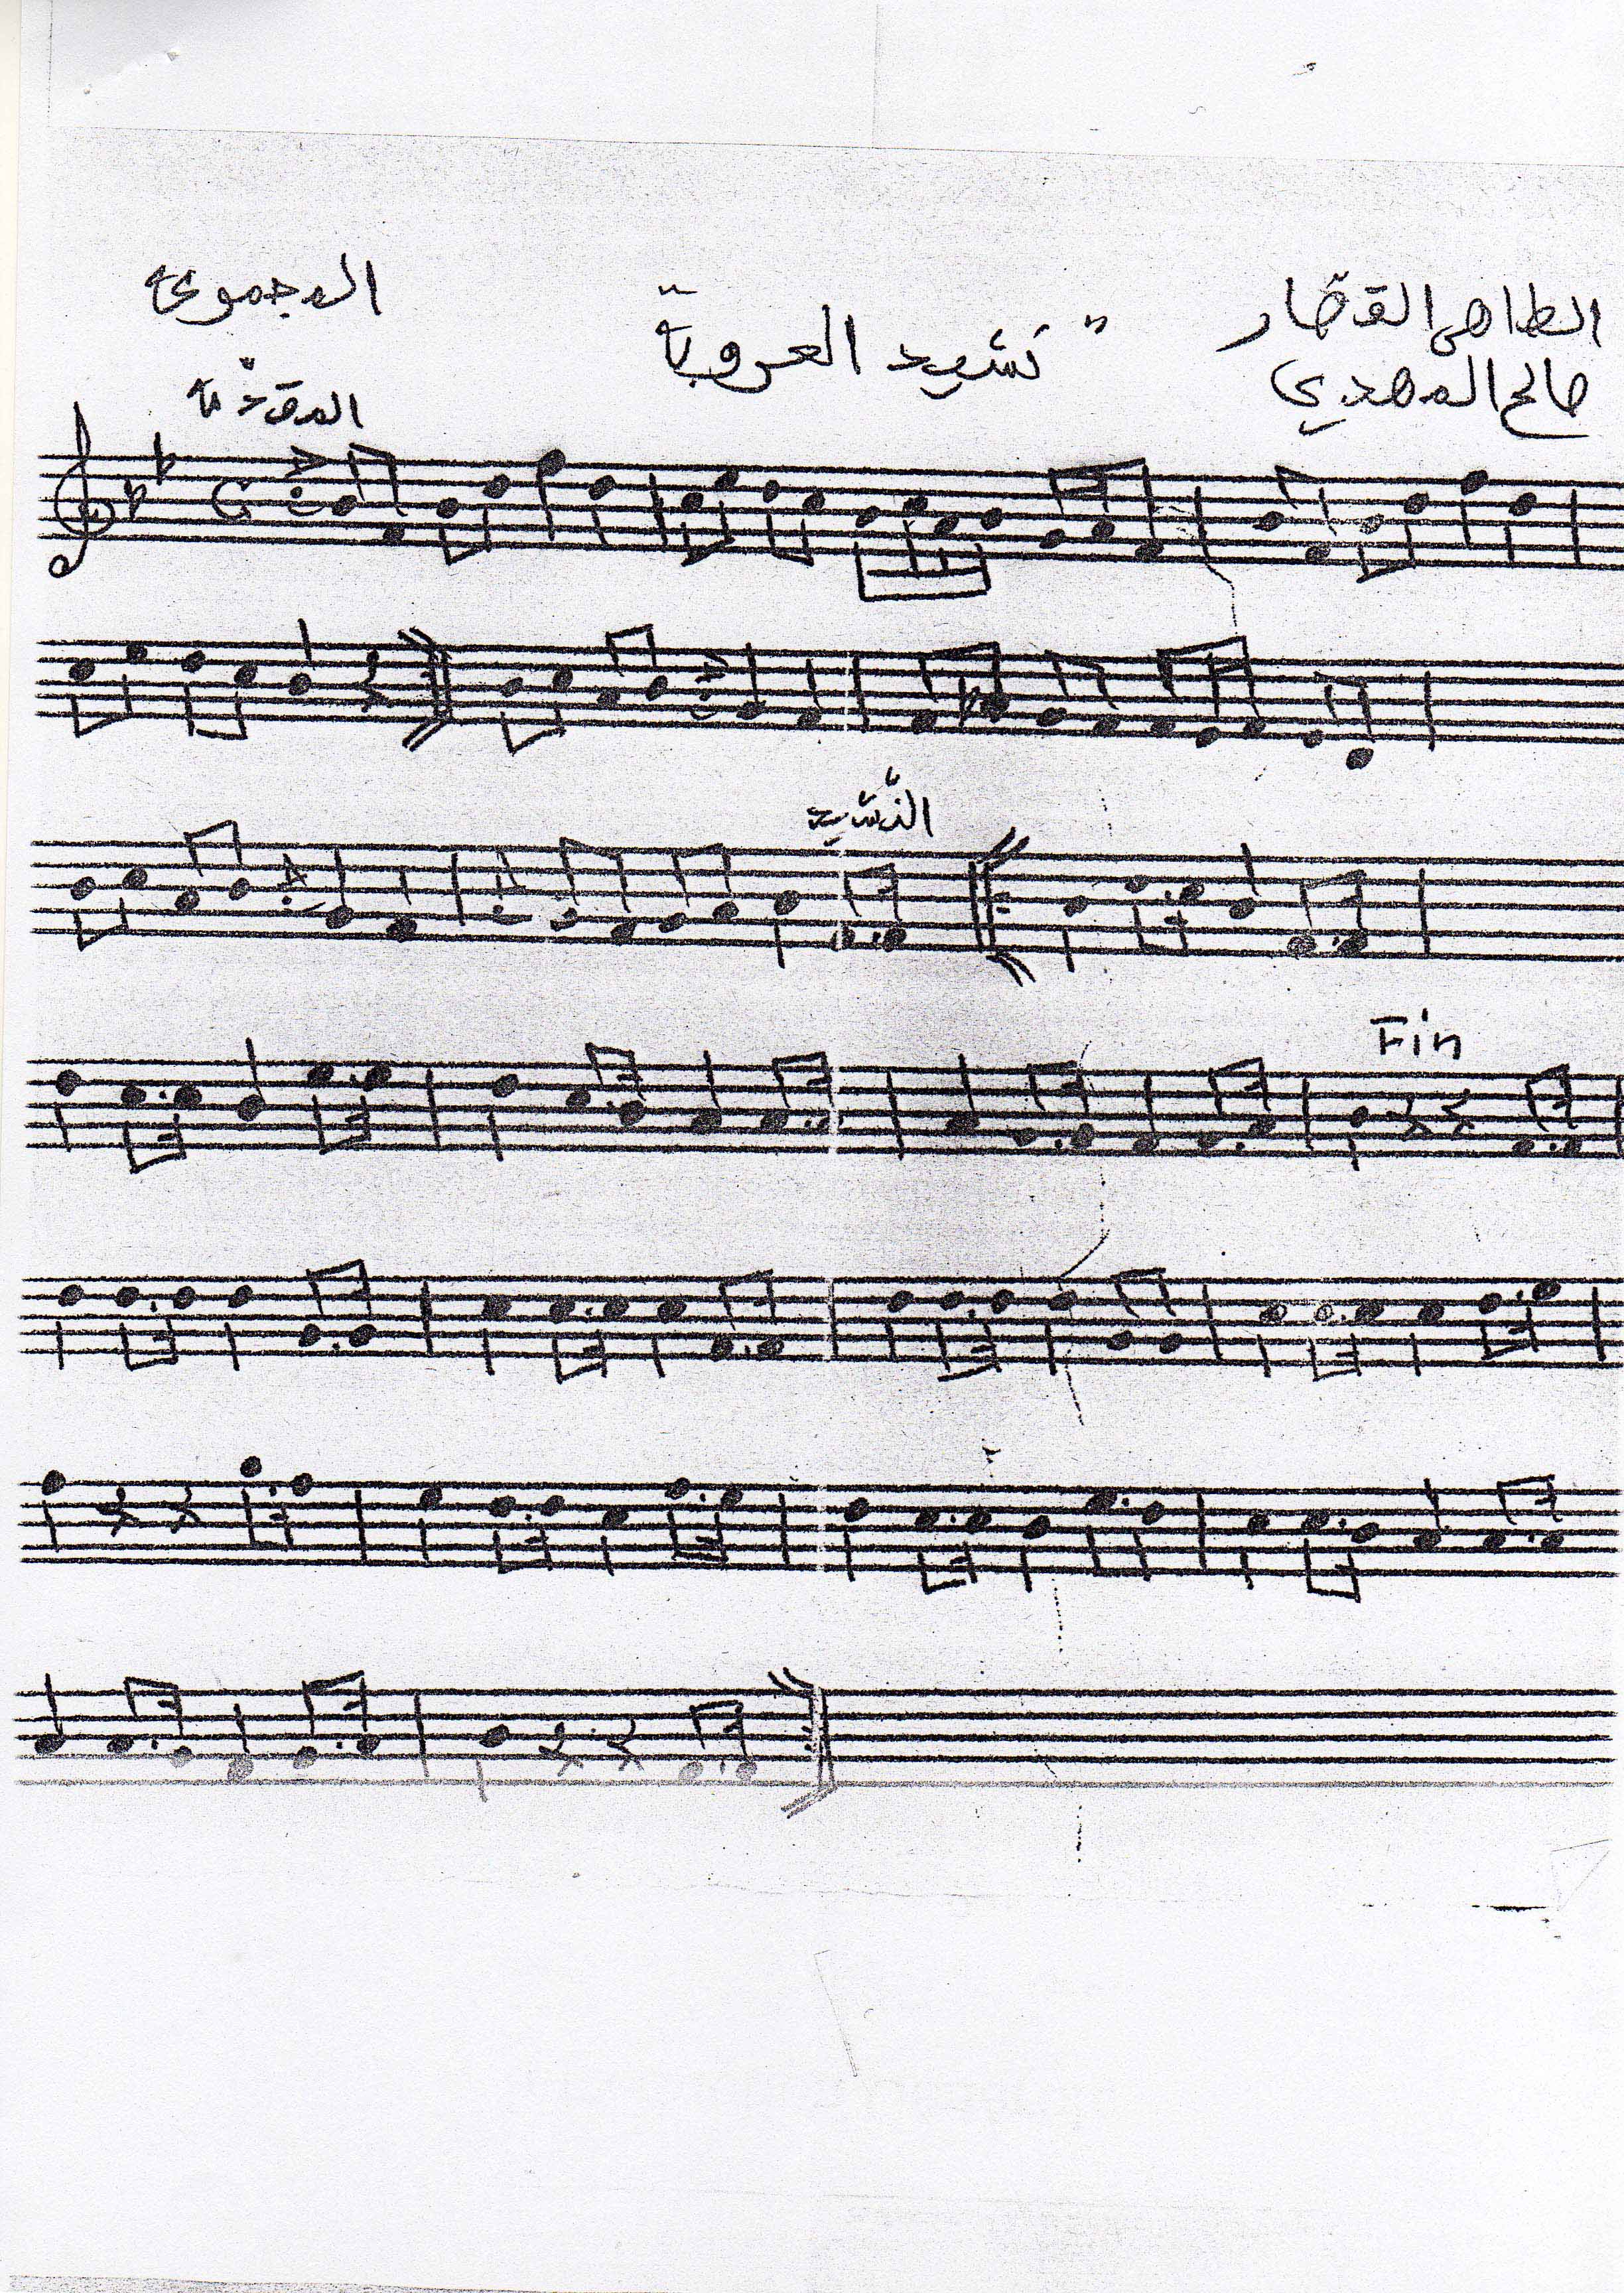 الطاهر القصّار
صالح المهدي
"نشيد العروبة"
المجموعة
المقدّمة
النّشيد
Fin